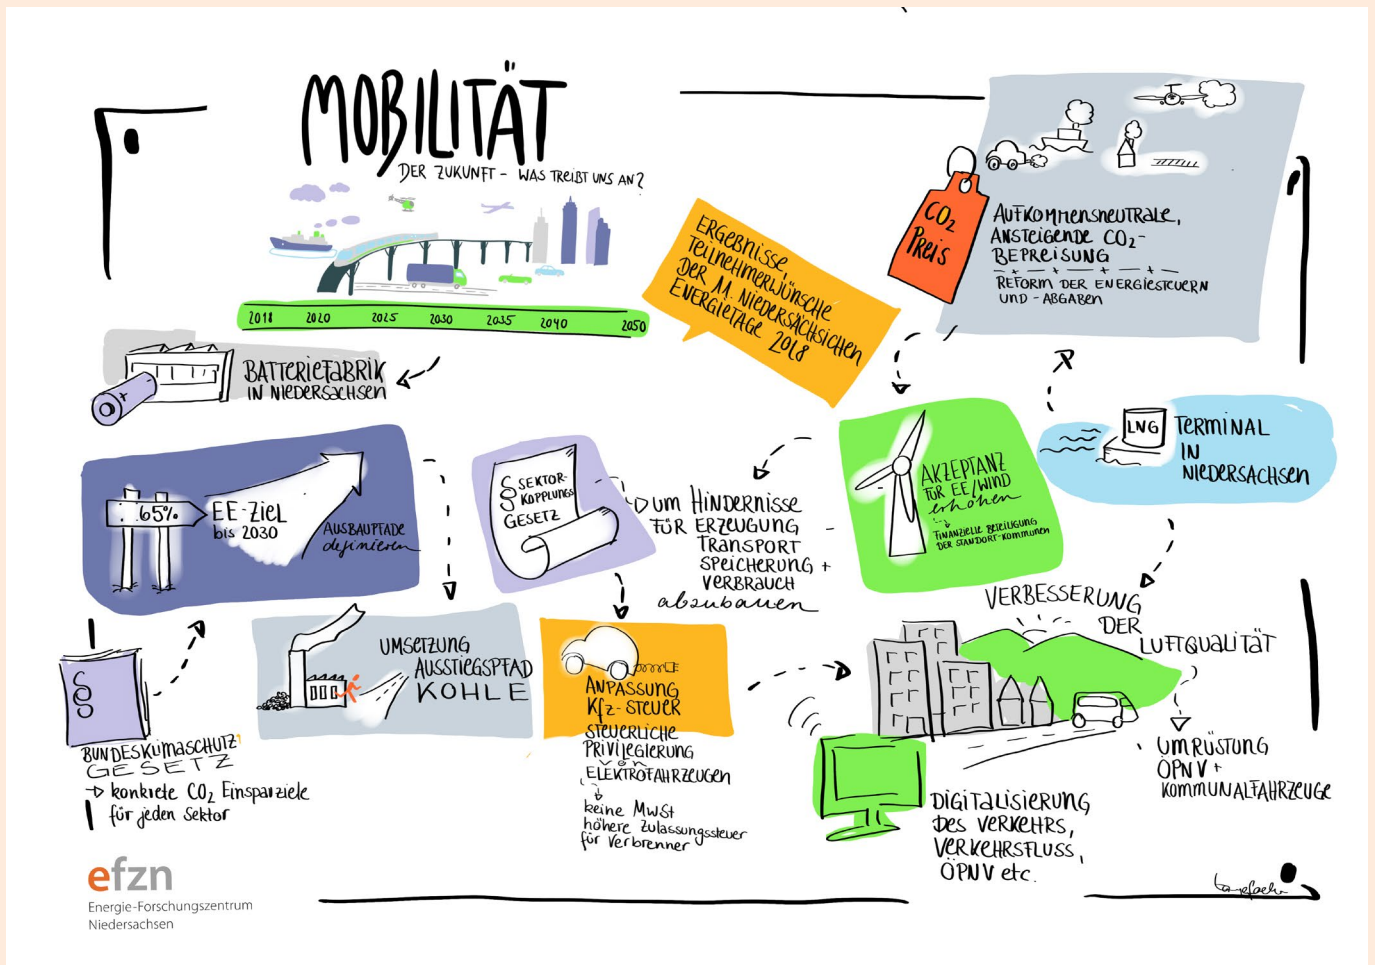 MOBILITÄT
DER ZUKUNFT - WAS TREIBT UNS AN?
2018 2020 2025 2030 2035 2040 2050
ERGEBNISSE
TEILNEHMERWÜNSCHE
DER 11. NIEDERSÄCHSICHEN
ENERGIETAGE 2018
CO₂
PREIS
AUFKOMMENSNEUTRALE,
ANSTEIGENDE CO₂-
BEPREISUNG
REFORM DER ENERGIESTEUERN
UND -ABGABEN
BATTERIEFABRIK
IN NIEDERSACHSEN
65%
EE-ZIEL
bis 2030
AUSBAUPFADE
definieren
§ SEKTOR-
§ KOPPLUNGS
GESETZ
UM HINDERNISSE
FÜR ERZEUGUNG
TRANSPORT
SPEICHERUNG +
VERBRAUCH
abzubauen
AKZEPTANZ
FÜR EE/WIND
erhöhen
FINANZIELLE BETEILIGUNG
DER STANDORT-KOMMUNEN
LNG
TERMINAL
IN
NIEDERSACHSEN
§
BUNDESKLIMASCHUTZ
GESETZ
→ konkrete CO₂ Einsparziele
für jeden Sektor
UMSETZUNG
AUSSTIEGSPFAD
KOHLE
ANPASSUNG
Kfz-STEUER
STEUERLICHE
PRIVILEGIERUNG
VON
ELEKTROFAHRZEUGEN
keine MwSt
höhere Zulassungssteuer
für Verbrenner
VERBESSERUNG
DER
LUFTQUALITÄT
UMRÜSTUNG
ÖPNV +
KOMMUNALFAHRZEUGE
DIGITALISIERUNG
DES VERKEHRS,
VERKEHRSFLUSS,
ÖPNV etc.
efzn
Energie-Forschungszentrum
Niedersachsen